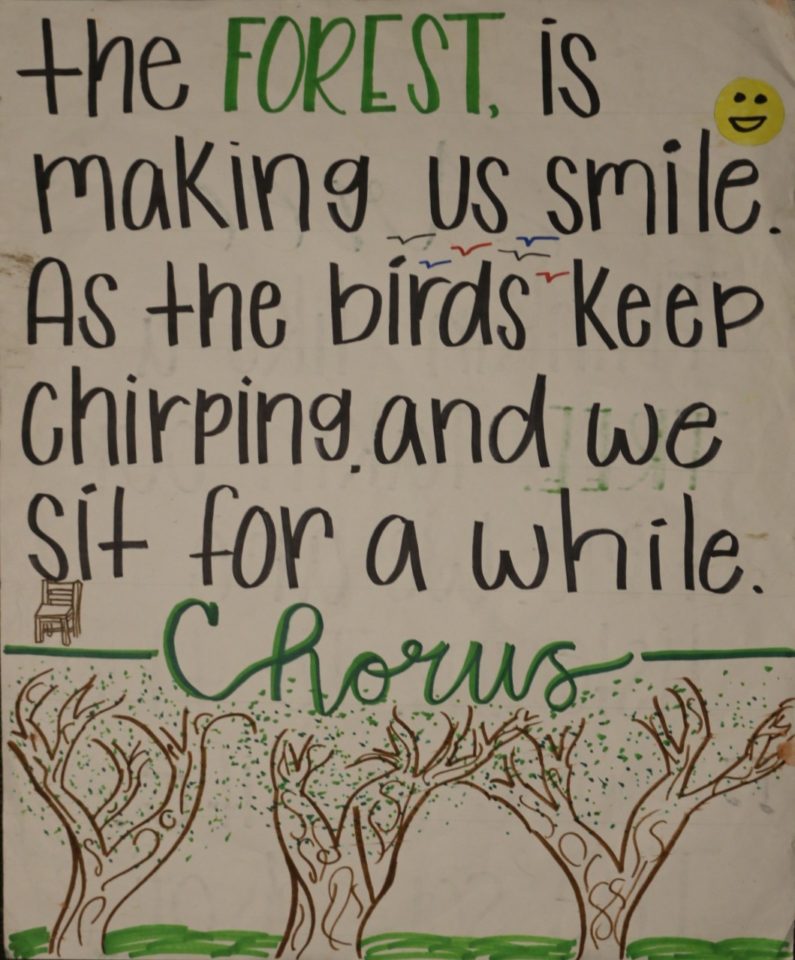 the FOREST, is
making us smile.
As the birds keep
chirping, and we
sit for a while.
Chorus